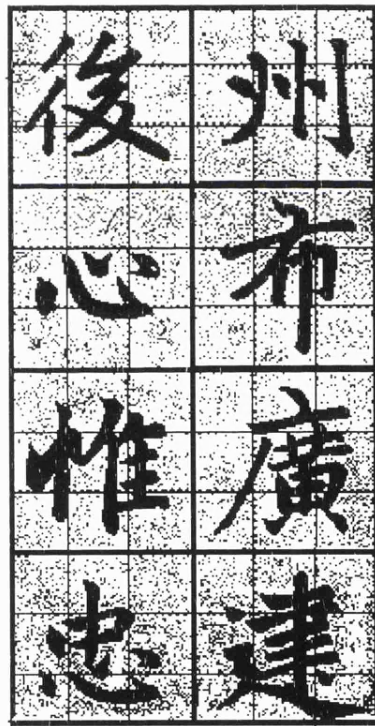 州布廣建
後心惟忠